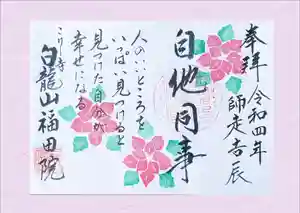 奉拝
令和四年
師走吉辰
自他同事
人のいいところを
いっぱい見つけると
見つけた自分が
幸せになる
こけ寺
白龍山福田院